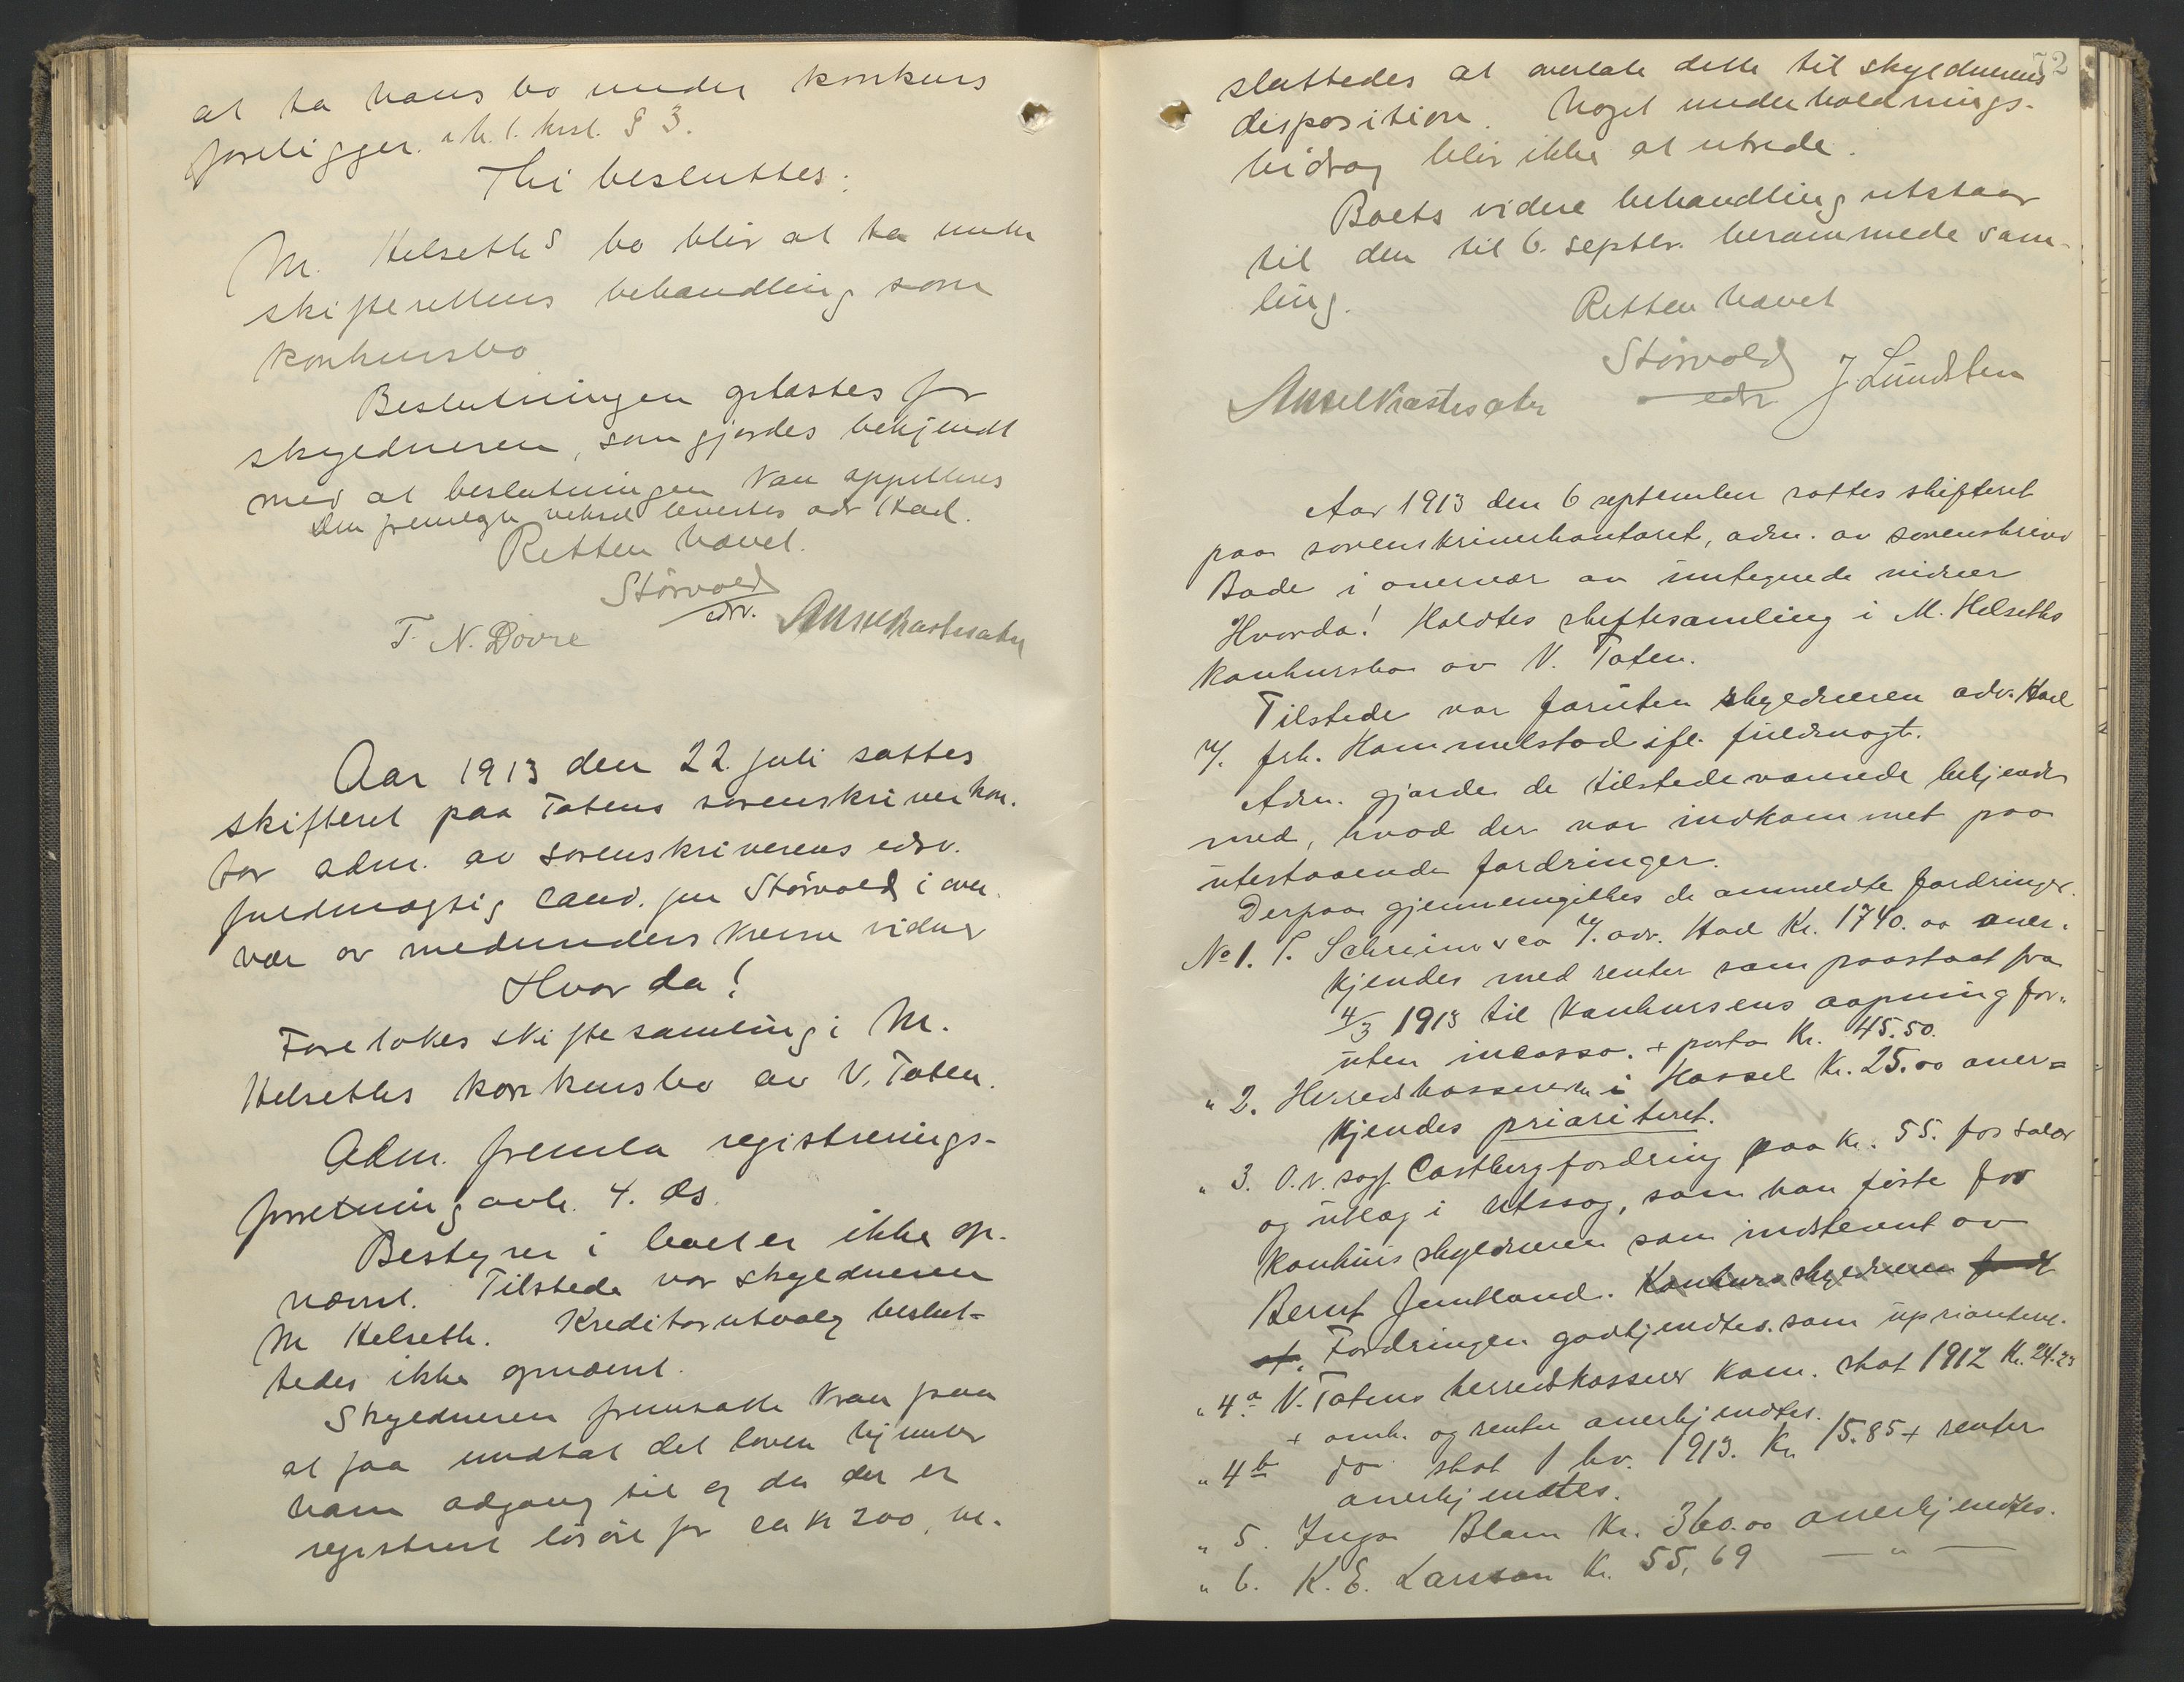 at ta hans bo under konkurs
foreligger. h. t. krsl. § 3.
Thi besluttes:
M. Helseths bo blir at ta under
skifterettens behandling som
konkursbo
Beslutningen oplæstes for
skyldneren, som gjordes bekjendt
med at beslutningen kan appelleres
Den fremlagte veksel leveres adv Hael.
Retten hævet.
Störvold
edsv.
T. N. Dovre
Aar 1913 den 22. juli sattes
skifteret paa Totens sorenskriverkon-
tor adm. av sorenskriverens edsv.
fuldmægtig cand. jur Störvold i over-
vær av medunderskrevne vidner
Hvorda!
Foretokes skiftesamling i M.
Helseths konkursbo av V. Toten.
Adm. fremla registrerings-
forretning avh. 4. ds.
Bestyrer i boet er ikke op-
nævnt. Tilstede var skyldneren
M Helseth. Kreditorutvalg beslut-
tedes ikke opnævnt.
Skyldneren fremsatte krav paa
at faa undtat det loven hjemler
ham adgang til og da der er
registrert lösöre for ca kr 200, be-
72
sluttedes at overlate dette til skyldnerens
disposition. Noget underholdnings-
bidrag blir ikke at utrede.
Boets videre behandling utstaar
til den til 6. septbr. berammede sam-
ling.
Retten hævet
Störvold
edsv
J. Lundsten
Aar 1913 den 6 september sattes skifteret
paa sorenskriverkontoret, adm. av sorenskriver
Bode i overvær av undtegnede vidner
Hvorda! Holdtes skiftesamling i M. Helseths
konkursbo av V. Toten.
Tilstede var foruten skyldneren adv. Hael
v/. frk. Hammelstad ifl. fuldmagt.
Adm. gjorde de tilstedeværende bekjendt
med, hvad der var indkommet paa
utestaaende fordringer.
Derpaa gjennemgikkes de anmeldte fordringer.
No 1. Schreiner & co v/. adv. Hael Kr. 1740.00 aner-
kjendes med renter som paastaat fra
4/3 1913 til konkursens aapning for-
uten incasso. + porto Kr. 45.50.
" 2. Herredskassereren i Hassel Kr. 25.00 aner-
kjendes prioritert.
" 3. O.r. sagf. Castberg fordring paa kr. 55. for salær
og utlæg i utssag, som han førte for
konkursskyldneren som indstevnt av
Bernt Jemtland. Konkursskyldneren
Fordringen godkjendtes som uprioritert.
" 4a V. Totens herredskasserer kom. skat 1912 Kr. 24.23
+ omk. og renter anerkjendtes.
" 4b do skat 1 kv. 1913. Kr. 15.85 + renter
anerkjendtes.
" 5. Inga Blom Kr. 360.00 anerkjendtes.
" 6. K. E. Larsson Kr. 55,69 — " —